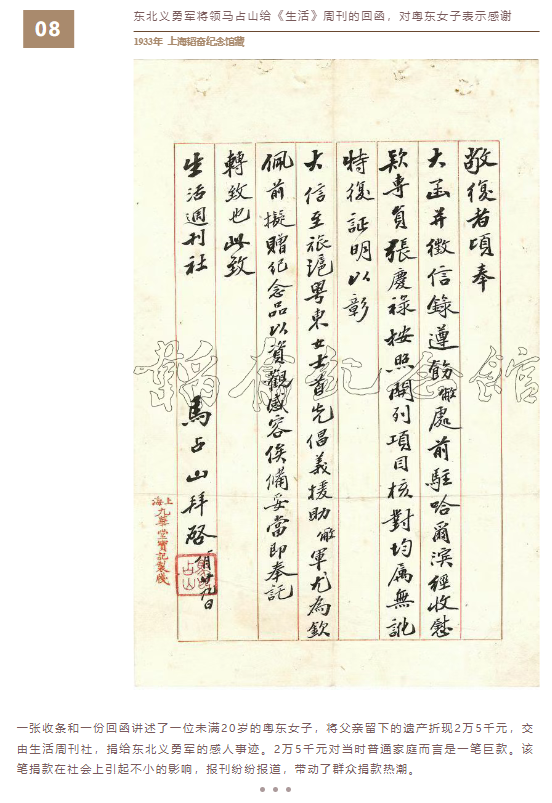 08
东北义勇军将领马占山给《生活》周刊的回函，对粤东女子表示感谢
1933年 上海韬奋纪念馆藏
敬復者頃奉
大函并徵信錄遵飭敝處前駐哈爾濱經收慰
款專員張慶祿按照開列項目核對均屬無訛
特復証明以彰
大信至旅滬粤東女士首先倡義援助敝軍尤為欽
佩前擬贈紀念品以資觀感容俟備妥當即奉託
轉致也此致
生活週刊社
馬占山拜啓
一月廿九日
上海九華堂寶記製牋
韜奮紀念館
一张收条和一份回函讲述了一位未满20岁的粤东女子，将父亲留下的遗产折现2万5千元，交
由生活周刊社，捐给东北义勇军的感人事迹。2万5千元对当时普通家庭而言是一笔巨款。该
笔捐款在社会上引起不小的影响，报刊纷纷报道，带动了群众捐款热潮。